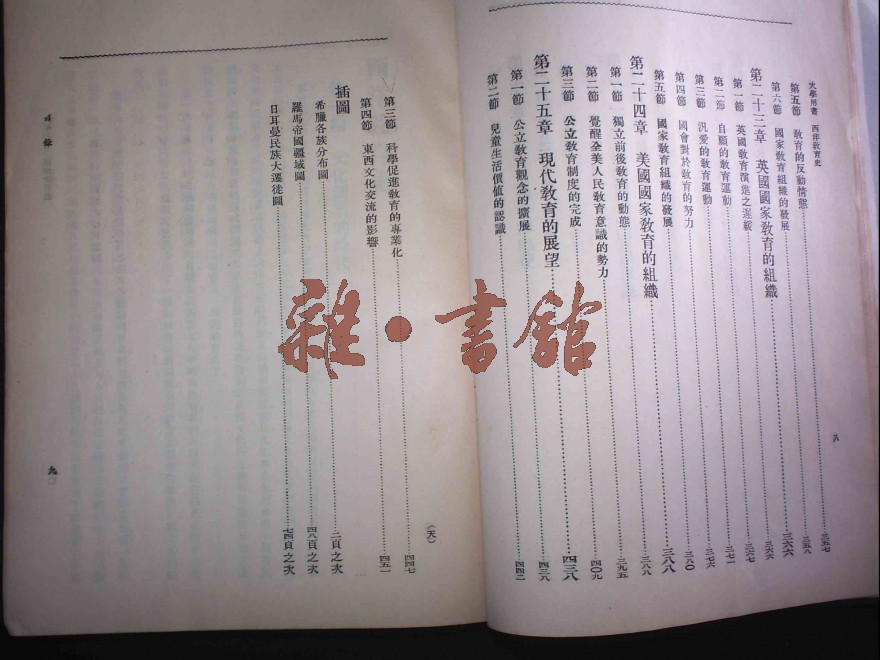 大學用書 西洋教育史
第五節 教育的反動情態……三五七
第六節 國家教育組織的發展……三五八
第二十三章 英國國家教育的組織……三六六
第一節 英國教育演進之遲緩……三六六
第二節 自願的教育運動……三六七
第三節 汎愛的教育運動……三七一
第四節 國會對於教育的努力……三七六
第五節 國家教育組織的發展……三八〇
第二十四章 美國國家教育的組織……三八八
第一節 獨立前後教育的動態……三八八
第二節 覺醒全美人民教育意識的勢力……三九五
第三節 公立教育制度的完成……四〇九
第二十五章 現代教育的展望……四三八
第一節 公立教育觀念的擴展……四三八
第二節 兒童生活價值的認識……四四二
八
(天)
第三節 科學促進教育的專業化……四四七
第四節 東西文化交流的影響……四五一
插圖
希臘各族分布圖……二頁之次
羅馬帝國疆域圖……四八頁之次
日耳曼民族大遷徙圖……七四頁之次
目錄
九
雜·書館